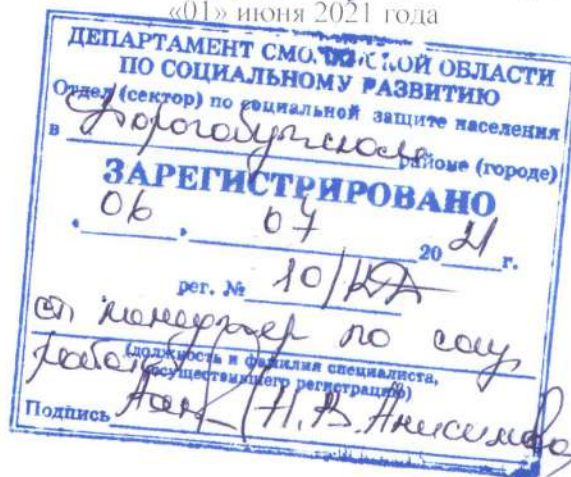 «01» июня 2021 года
ДЕПАРТАМЕНТ СМОЛЕНСКОЙ ОБЛАСТИ
ПО СОЦИАЛЬНОМУ РАЗВИТИЮ
Отдел (сектор) по социальной защите населения
в Дорогобужском районе (городе)
ЗАРЕГИСТРИРОВАНО
" 06 " 07 20 21 г.
рег. № 10/КД
ст менеджер по соц
работе
(должность и фамилия специалиста,
осуществившего регистрацию)
Подпись /Н.В. Анисимова